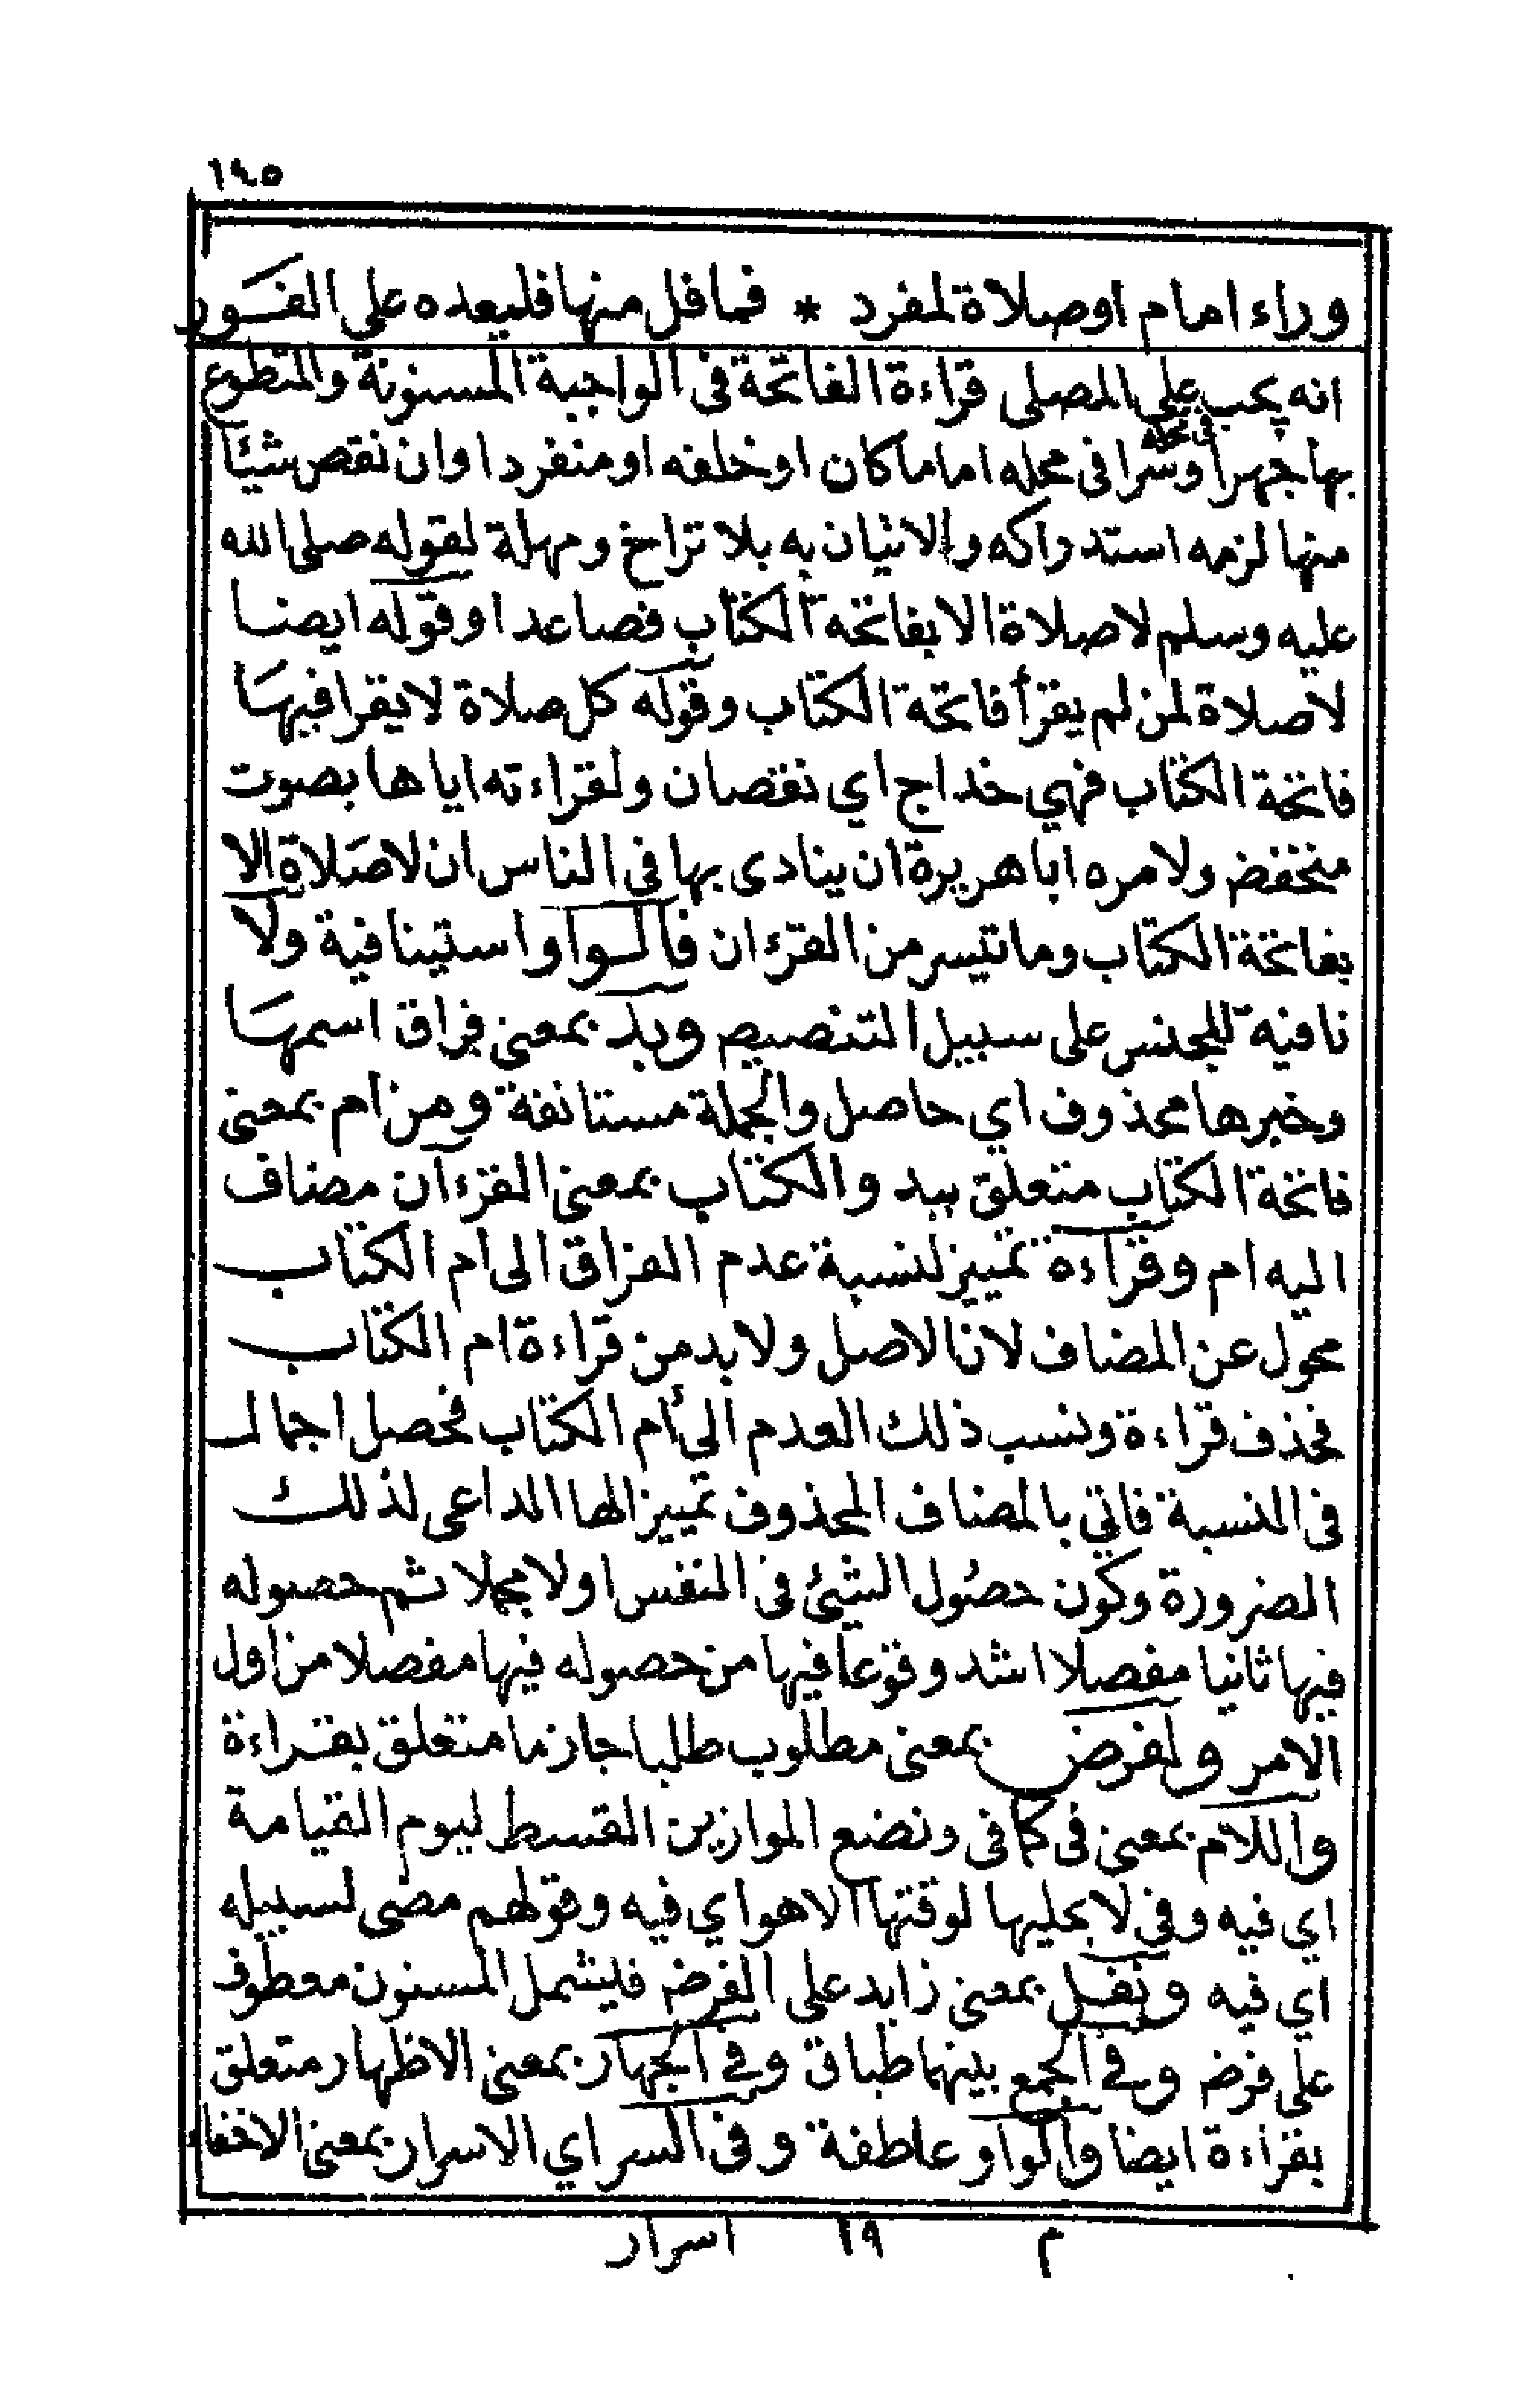 ١٤٥
وراء امام اوصلاة لمفرد * فمافل منها فليعده على الفور
انه يجب على المصلى قراءة الفاتحة فى الواجبة المسنونة والمتطوع
فى محله
بها جهرا وسرا فى محله اماما كان اوخلفه اومنفردا وان نقص شيئا
منها لزمه استدراكه والاتيان به بلا تراخ ومهلة لقوله صلى الله
عليه وسلم لاصلاة الا بفاتحة الكتاب فصاعدا وقوله ايضا
لاصلاة لمن لم يقرأ فاتحة الكتاب وقوله كل صلاة لايقرا فيها
فاتحة الكتاب فهي خداج اي نقصان ولقراءته اياها بصوت
منخفض ولامره اباهريرة ان ينادى بها فى الناس ان لاصلاة الا
بفاتحة الكتاب وماتيسر من القرءان فالواو استينافية ولا
نافية للجنس على سبيل التنصيص وبد بمعنى فراق اسمها
وخبرها محذوف اي حاصل والجملة مستانفة ومن ام بمعنى
فاتحة الكتاب متعلق ببد والكتاب بمعنى القرءان مضاف
اليه ام وقراءة تمييز لنسبة عدم الفراق الى ام الكتاب
محول عن المضاف لان الاصل ولابد من قراءة ام الكتاب
فحذف قراءة ونسب ذلك العدم الى أم الكتاب فحصل اجمال
فى النسبة فاتي بالمضاف المحذوف تمييزا لها الداعى لذلك
الضرورة وكون حصول الشئ فى النفس اولا مجملا ثم حصوله
فيها ثانيا مفصلا اشد وقوعا فيها من حصوله فيها مفصلا من اول
الامر ولفرض بمعنى مطلوب طلبا جازما متعلق بقراءة
واللام بمعنى فى كما فى ونضع الموازين القسط ليوم القيامة
اي فيه وفى لايجليها لوقتها الاهو اي فيه وقولهم مضى لسبيله
اي فيه ونفل بمعنى زايد على الفرض فليشمل المسنون معطوف
على فرض وفي الجمع بينهما طباق وفي الجهار بمعنى الاظهار متعلق
بقراءة ايضا والواو عاطفة وفى السر اي الاسرار بمعنى الاخفاء
م ١٩ اسرار